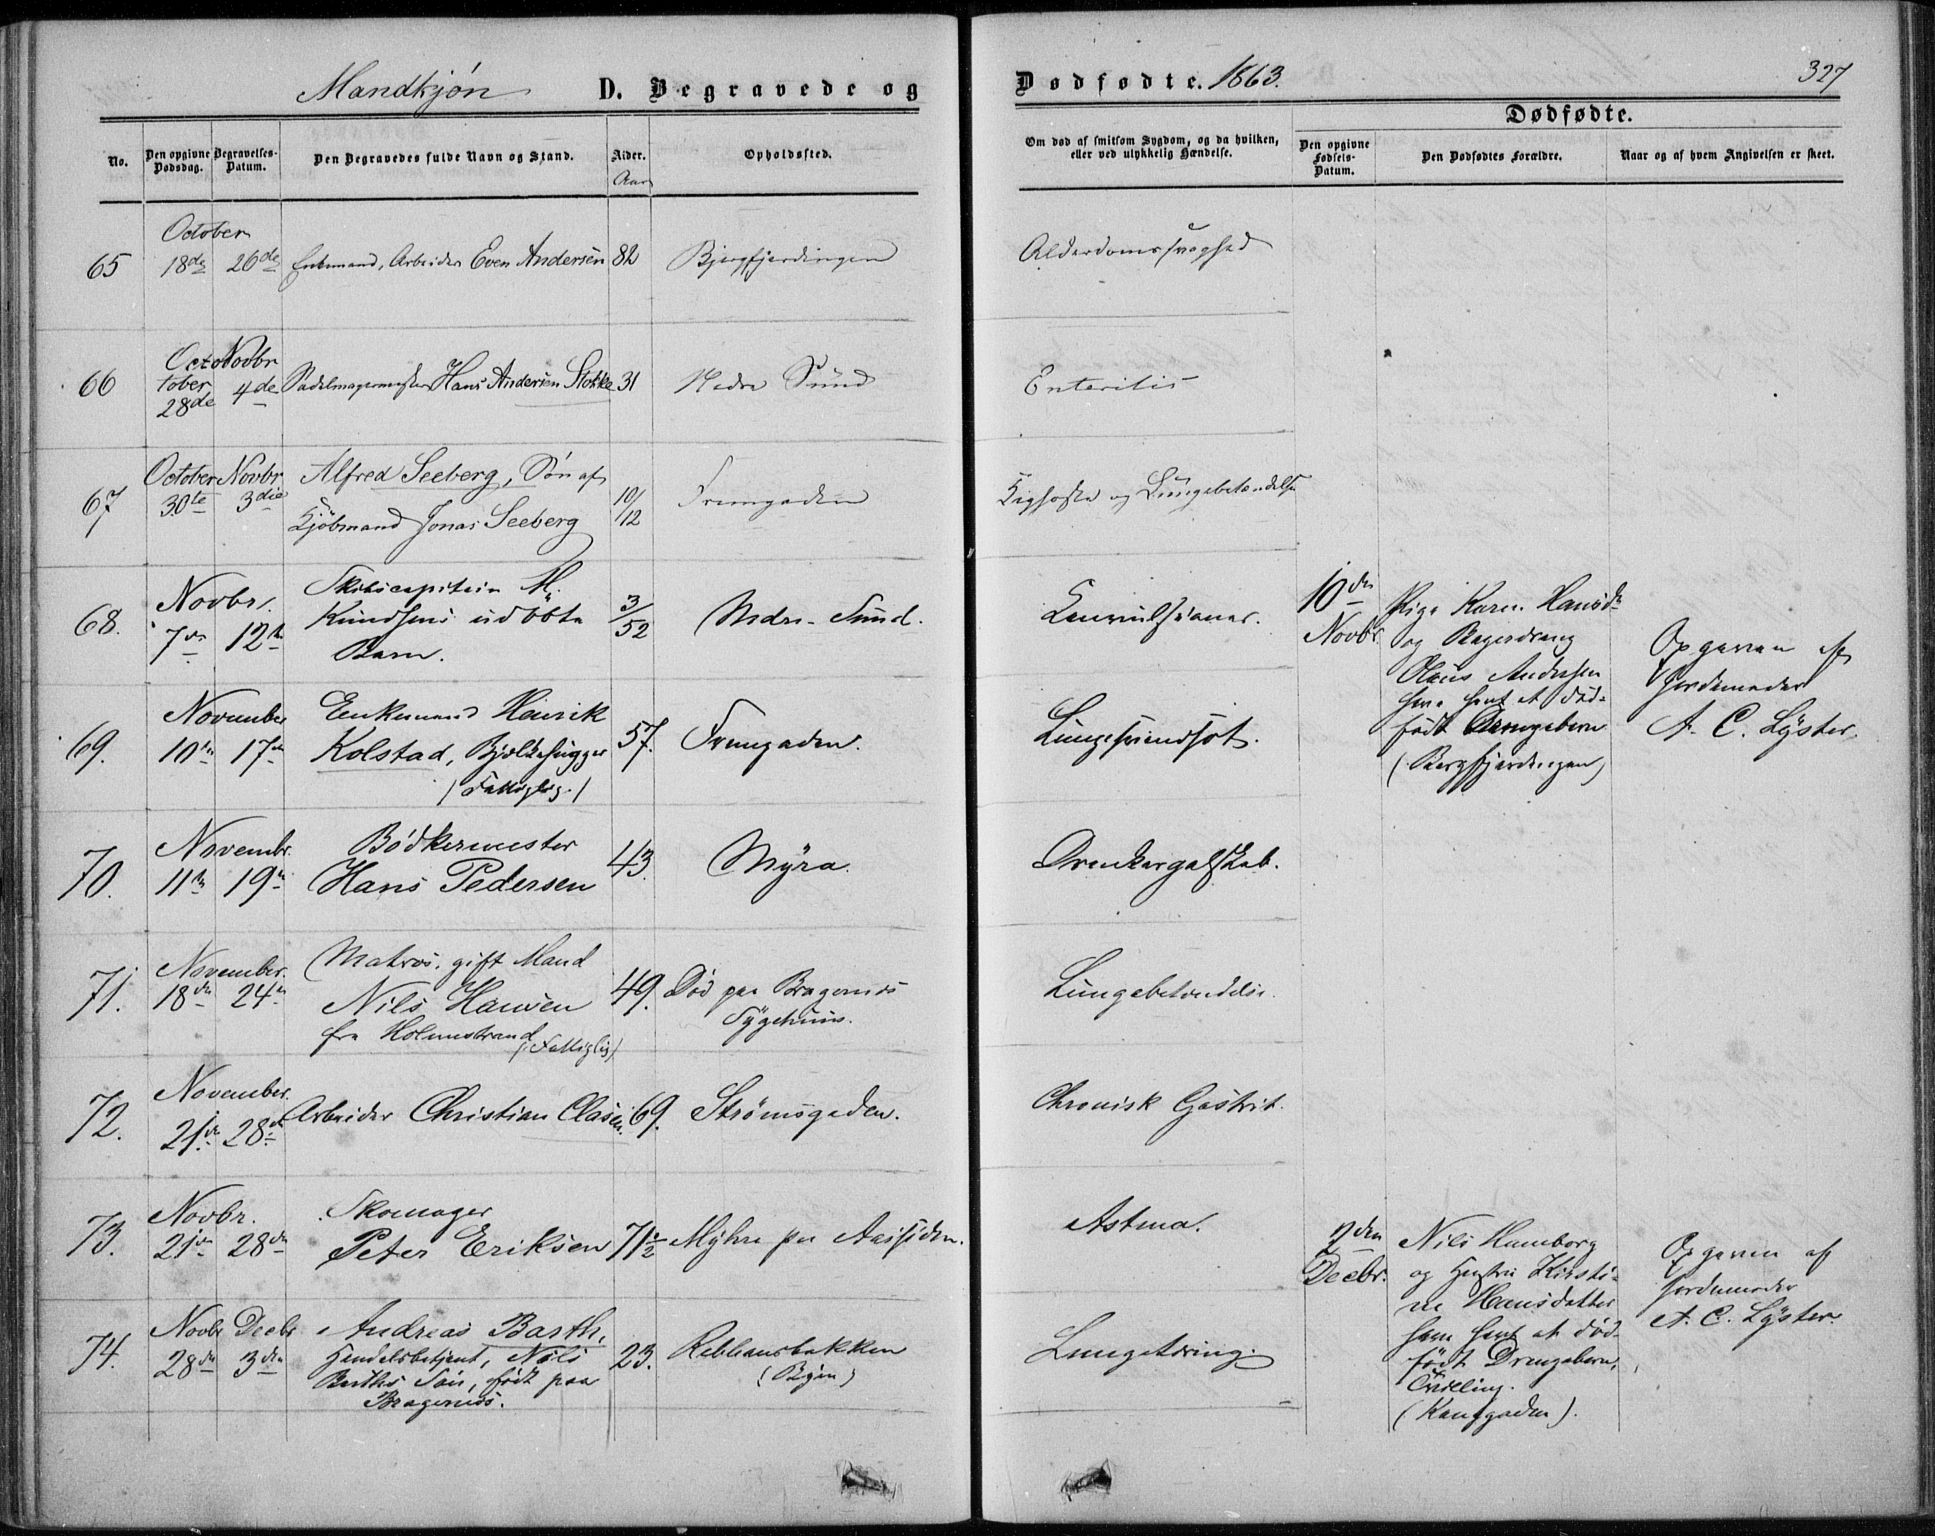 Mandkjøn D. Begravede og
Dødfødte. 1863. 327
No.
Den opgivne Dødsdag.
Begravelses-Datum.
Den Begravedes fulde Navn og Stand.
Alder.
Aar
Opholdssted.
Om død af smitsom Sygdom, og da hvilken,
eller ved ulykkelig Hændelse.
Dødfødte.
Den opgivne
Fødsels-
Datum.
Den Dødfødtes Forældre.
Naar og af hvem Angivelsen er skeet.
65
October
18de 26de Enkemand, Arbeider Even Andersen 82 Bjergfjerdingen
Alderdomssvaghed
66
October Novbr
28de 4de Sadelmagermester Hans Andersen Stokke 31 Nedre Sund
Enteritis
67
October Novbr
30te 3die
Alfred Seeberg, Søn af
Kjöbmand Jonas Seeberg
10/12
Fremgaden
Kighoste og Lungebetændelse
68.
Novbr.
7de 12te
Skibscapitein M.
Knudsens udöbte
Barn.
3/52
Nedre Sund.
Convulsioner.
10de
Novbr.
Pige Karen Hansd.
og Bagerdreng
Olaus Andersen
have havt et död-
födt Drengebarn
(Bergfjerdingen)
Opgaven af
Jordemoder
A. C. Lyster.
69.
November
10de 17de
Enkemand Henrik
Kolstad, Bjelkehugger
/Fattiglig./
57.
Fremgaden.
Lungesvindsot.
70.
Novembr.
11te 19de
Bödkermester
Hans Pedersen
43.
Myra.
Drankergalskab.
71.
November.
18de 24de
Matros, gift Mand
Nils Hansen
fra Holmestrand
(Fattiglig)
49.
Död paa Bragernes
Sygehuus.
Lungebetændelse.
72.
November.
21de 28de
Arbeider Christian Clasen.
69.
Strömsgaden.
Chronisk Gastrit.
73.
Novbr.
21de 28de
Skomager
Peter Eriksen
71 1/2
Myhre paa Aassiden.
Astma.
2den
Decbr.
Nils Hamborg
og Hustru Kirsti-
ne Hansdatter
have havt et död-
födt Drengebarn,
Tvilling.
(Kongsgaden).
Opgaven af
Jordemoder
A. C. Lyster
74.
Novbr Decbr
28de 3die
Andreas Barth,
Handelsbetjent, Nils
Barths Sön, födt paa
Bragernes.
23.
Rebbansbakken
(Byen)
Lungetæring.